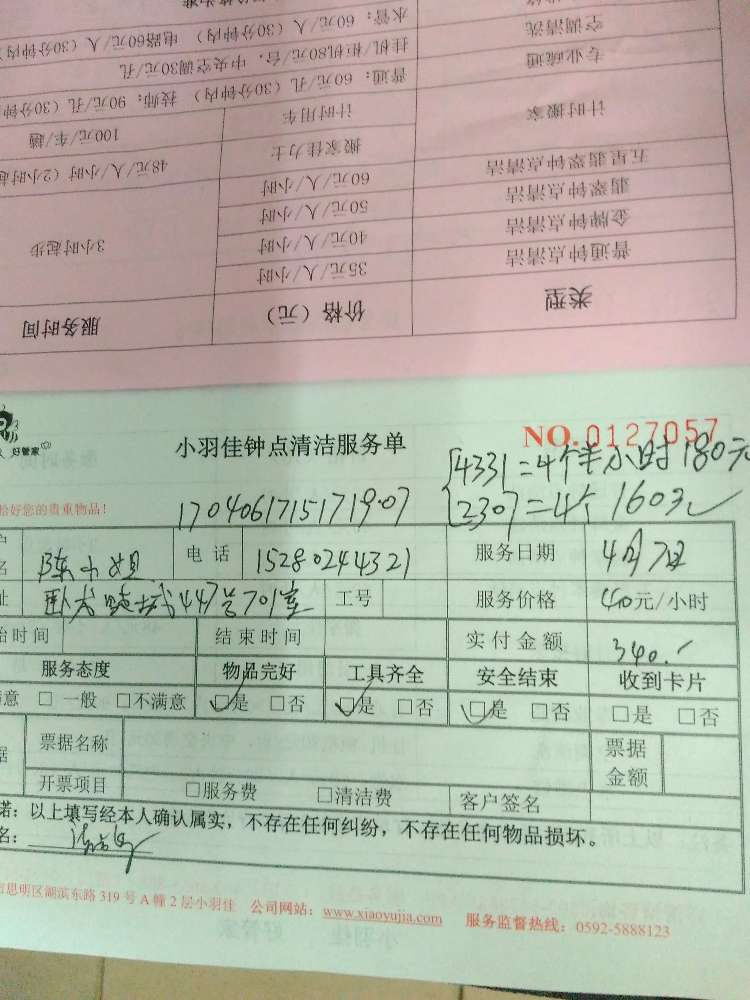 类型 价格（元） 服务时间
普通钟点清洁 35元/人/小时 3小时起步
金牌钟点清洁 40元/人/小时
翡翠钟点清洁 50元/人/小时
五星翡翠钟点清洁 60元/人/小时
搬家佳力士 48元/人/小时（2小时起
计时搬家 计时用车 100元/车/趟
专业疏通 普通：60元/孔（30分钟内） 技师：90元/孔（30分钟
空调清洗 挂机/柜机80元/台．中央空调30元/孔
水管：60元/人（30分钟内） 电路60元/人（30分钟内）
好管家 小羽佳钟点清洁服务单 NO.0127057
4331=4个半小时180元
2307=4个160元
恰好您的贵重物品！
17040617151719.07
陈小姐 电话 15280244321 服务日期 4月7日
447号701室 工号 服务价格 40元/小时
始时间 结束时间 实付金额 340.
服务态度 物品完好 工具齐全 安全结束 收到卡片
意 □一般 □不满意 □是 □否 □是 □否 □是 □否 □是 □否
票据名称 票据金额
开票项目 □服务费 □清洁费 客户签名
诺：以上填写经本人确认属实，不存在任何纠纷，不存在任何物品损坏。
名：
市思明区湖滨东路319号A幢2层小羽佳 公司网站：www.xiaoyujia.com 服务监督热线：0592-5888123